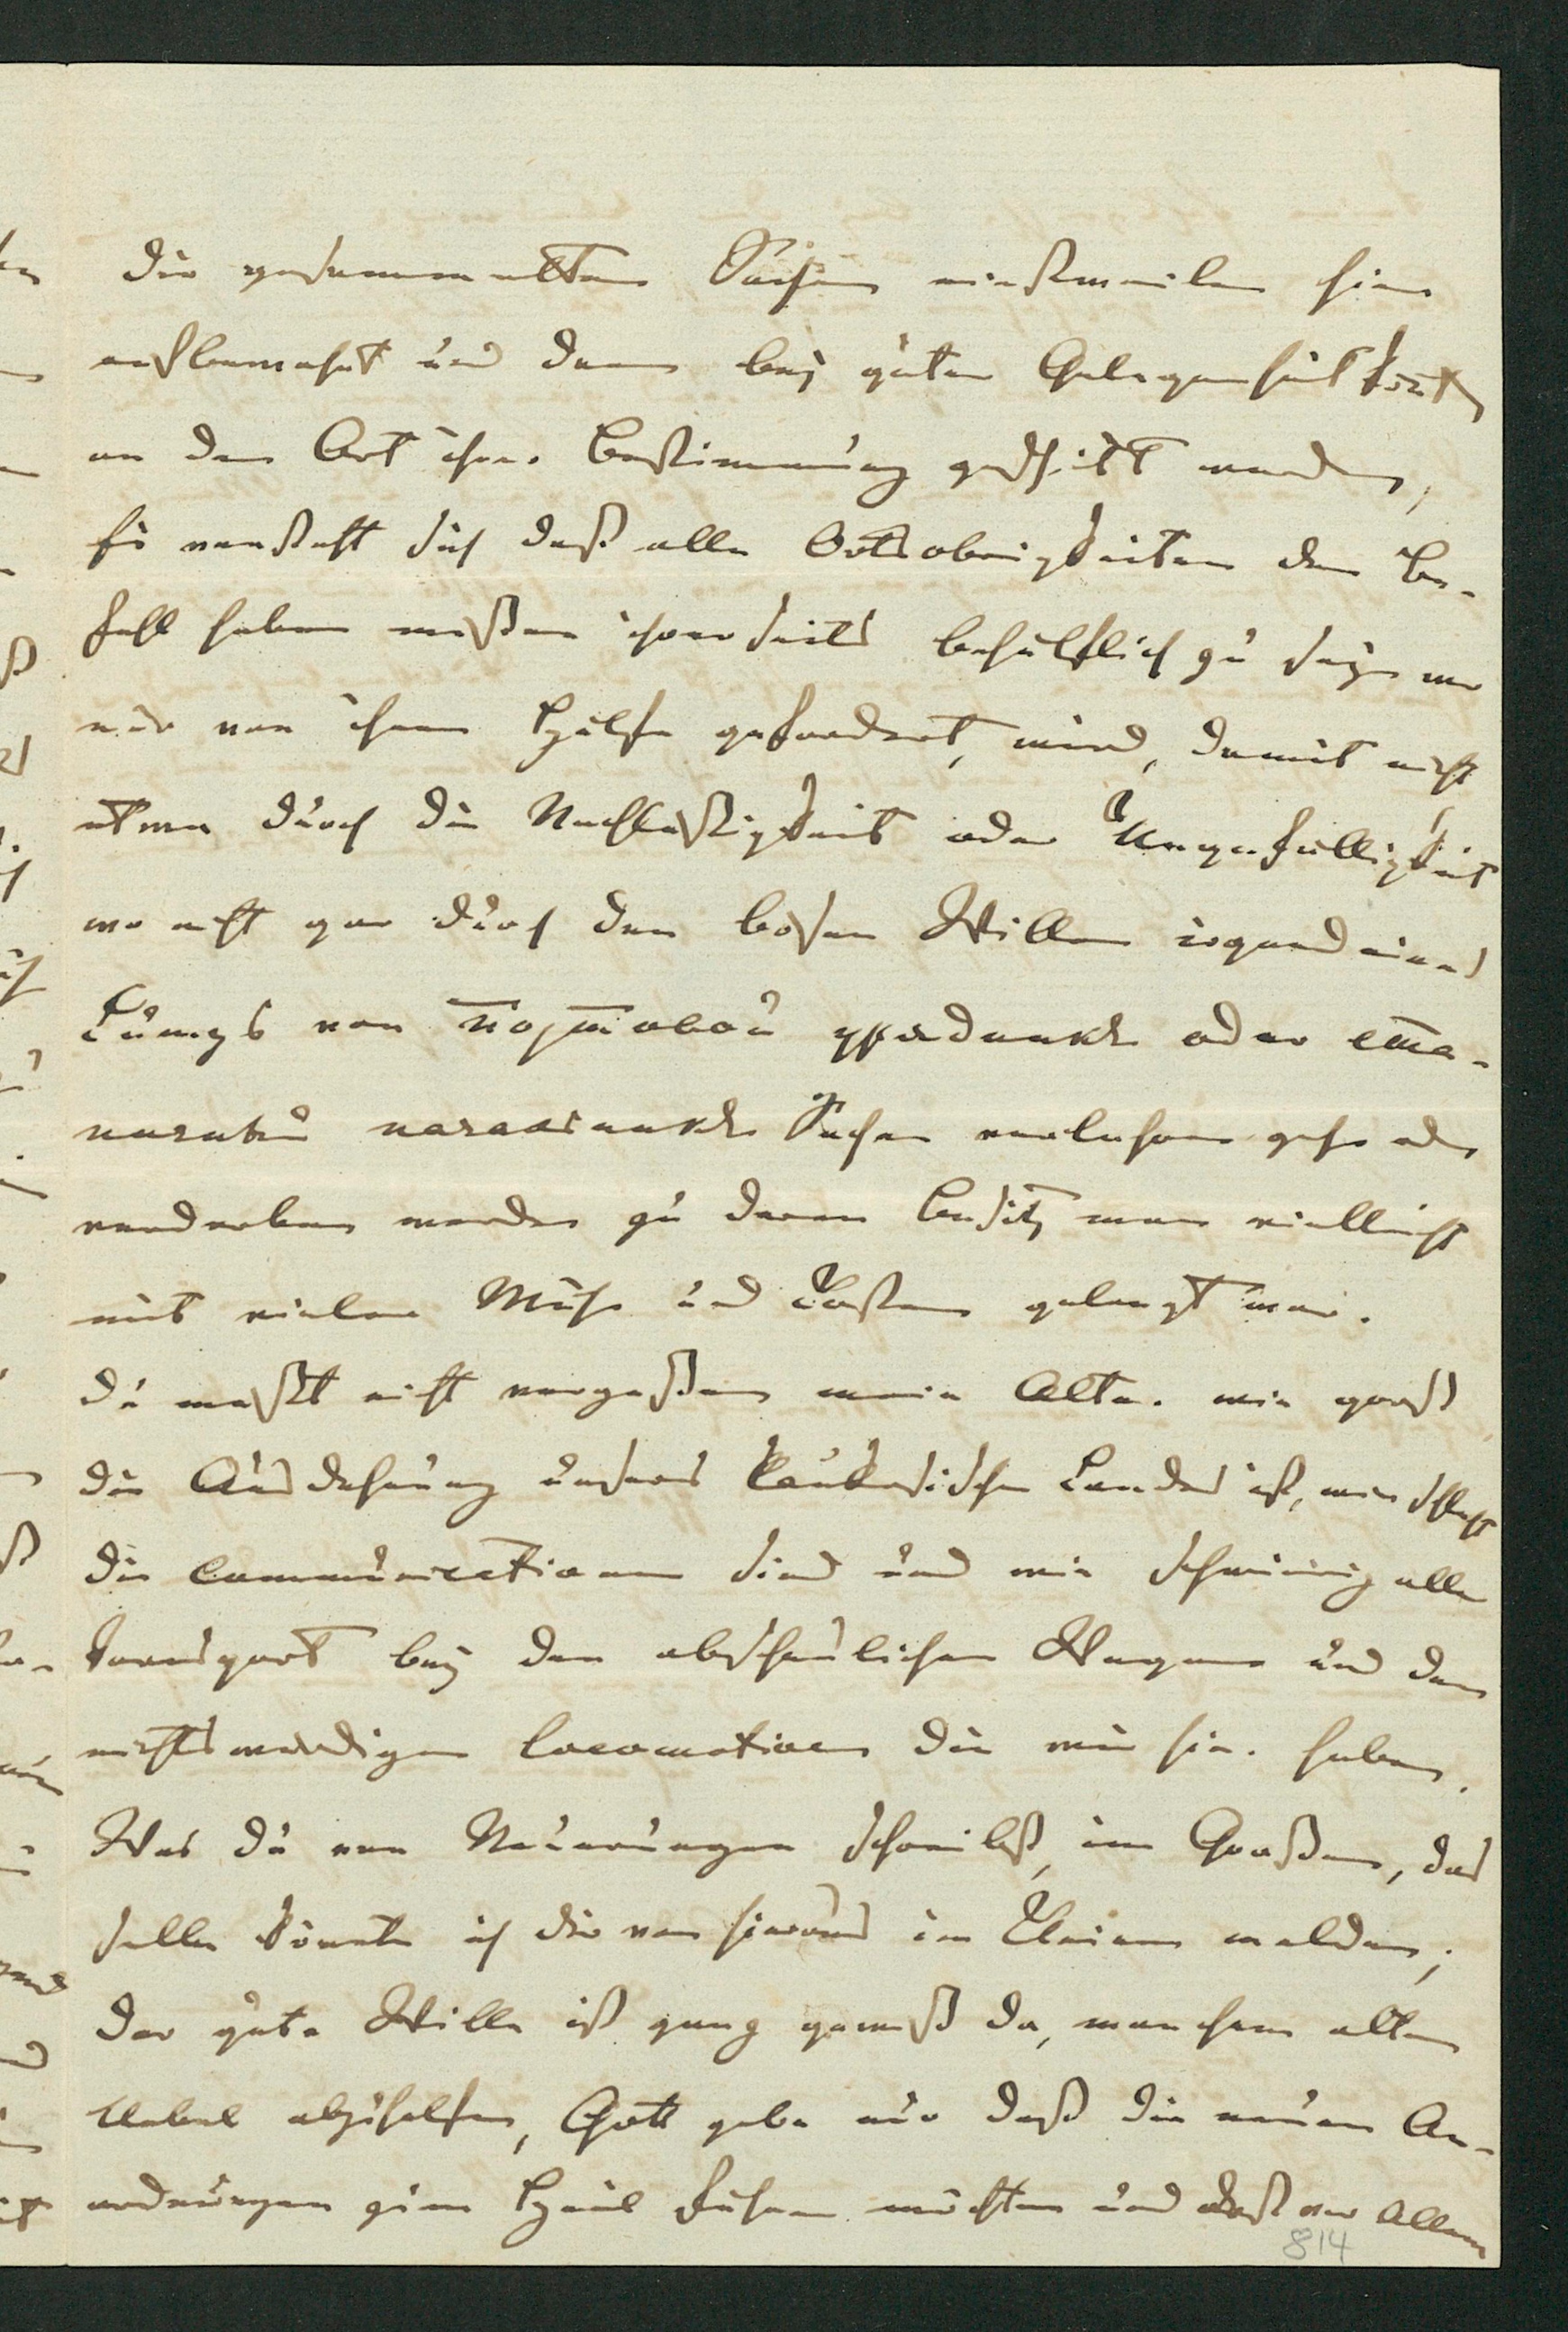 die gesammelten Sachen einstweilen hier
aufbewahrt und dann bey guter Gelegenheit fort
an den Ort ihrer Bestimmung geschickt werden,
so versteht sich daß alle Ortsobrigkeiten den Be-
fehl haben müßen ihrerseits behülflich zu seyn wo
nur von ihnen Hülfe gefordert, wird, damit nicht
etwa durch die Nachlaßigkeit oder Ungefälligkeit
wo nicht gar durch den bosen Willen irgend eines
Lumps von почтовой oder ста-
Sachen verlohren gehe oder
verdorben werden zu deren Besitz man vielleicht
mit vieler Mühe und Kosten gelangt war.
Du mußt nicht vergeßen mein Alter. wie groß
die Ausdehnung unseres Kaukasischen Landes ist, wie schlecht
die Communicationen sind und wie schwierig aller
Transport bey den abscheulichen Wegen und den
nichtswürdigen locomotiven die wir hier haben.
Was du von Neuerungen schreibst, im Großen, das
selbe könnte ich dir von hieraus im Kleinen melden;
der gute Wille ist ganz gewiß da, manchem alten
Uebel abzuhelfen, Gott gebe nur daß die neuen An-
ordnungen zum Heil führen möchten und daß vor Allem
814